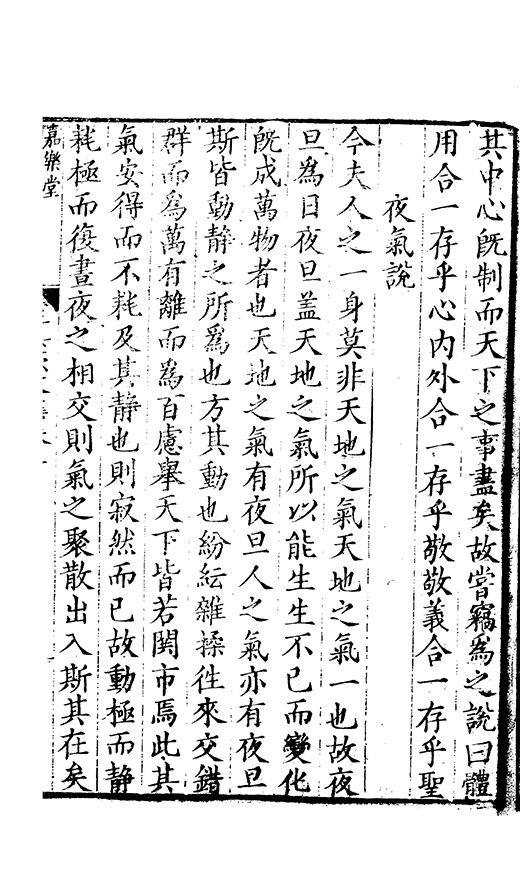 其中心旣制而天下之事盡矣故嘗竊爲之說曰體
用合一存乎心内外合一存乎敬敬義合一存乎聖
夜氣說
今夫人之一身莫非天地之氣天地之氣一也故夜
旦爲日夜旦盖天地之氣所以能生生不已而變化
旣成萬物者也天地之氣有夜旦人之氣亦有夜旦
斯皆動静之所爲也方其動也紛紜雜揉徃來交錯
群而爲萬有離而爲百慮舉天下皆若閧市焉此其
氣安得而不耗及其静也則寂然而已故動極而静
耗極而復晝夜之相交則氣之聚散出入斯其在矣
嘉樂堂